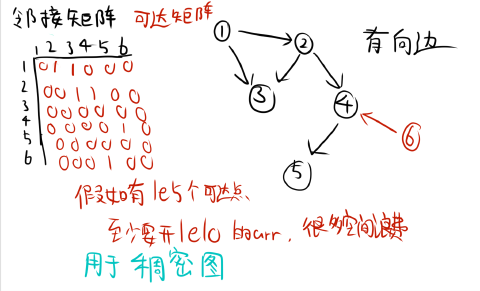 邻接矩阵 可达矩阵
1 2 3 4 5 6
1 0 1 1 0 0 0
2 0 0 1 1 0 0
3 0 0 0 0 0 0
4 0 0 0 0 1 0
5 0 0 0 0 0 0
6 0 0 0 1 0 0
1
2
有向边
3
4
6
5
假如有1e5个可达点、
至少要开1e10的arr，很多空间浪费
用于稠密图